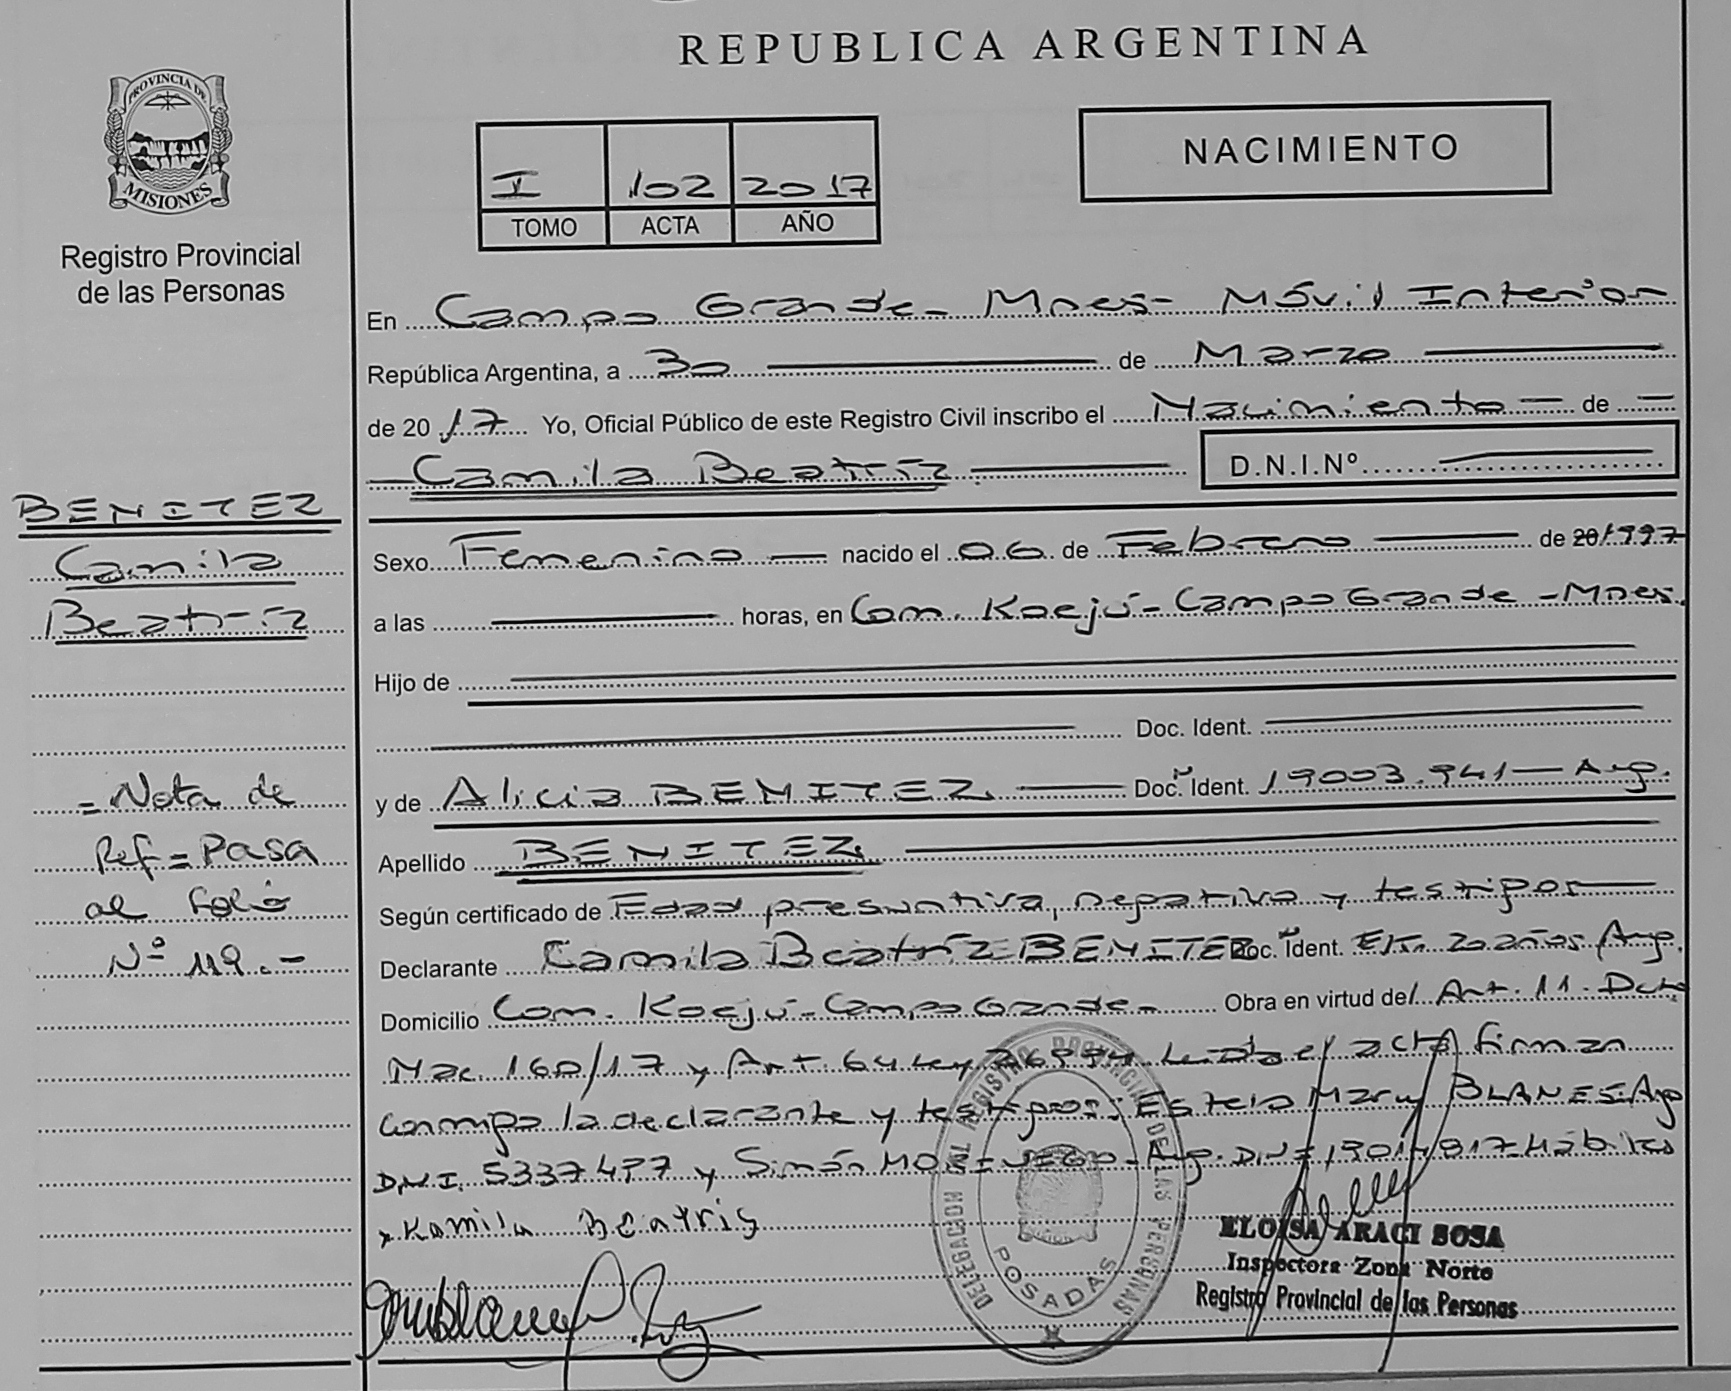 REPUBLICA ARGENTINA
PROVINCIA DE
MISIONES
Registro Provincial
de las Personas
NACIMIENTO
I 102 2017
TOMO ACTA AÑO
En Campo Grande - Mnes - Móvil Interior
República Argentina, a 30 de Marzo
de 20 17 Yo, Oficial Público de este Registro Civil inscribo el Nacimiento de
Camila Beatríz D.N.I.Nº
BENITEZ
Camila
Beatríz
Sexo Femenino nacido el 06 de Febrero de 20 1997
a las horas, en Com. Kaejú - Campo Grande - Mnes.
Hijo de
Doc. Ident.
y de Alicia BENITEZ Doc. Ident. 19003.941 - Arg.
Apellido BENITEZ
= Nota de
Ref = Pasa
al folio
Nº 119.-
Según certificado de Edad presuntiva, negativa y testigos
Declarante Camila Beatríz BENITEZ Doc. Ident. 20 años Arg.
Domicilio Com. Kaejú - Campo Grande - Obra en virtud del Art. 11. Dcto
Nac. 160/17 y Art. 64 Ley 26994 Leída el acta firman
conmigo la declarante y testigos: Estela Mary BLANES - Arg
D.N.I. 5337497 y Simón Arg. D.N.I Hábiles
x Kamila Beatris
DELEGACION MOVIL REGISTRO PROVINCIAL DE LAS PERSONAS
POSADAS
ELOISA ARACI SOSA
Inspectora Zona Norte
Registro Provincial de las Personas